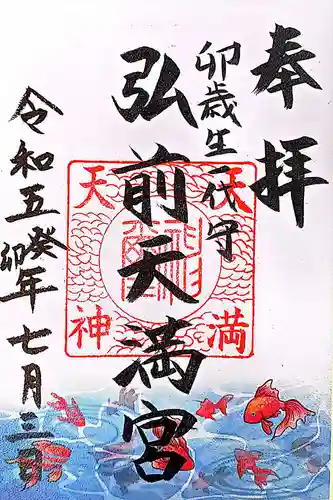 奉拝
卯歳生一代守
弘前天満宮
令和五癸卯年七月三日
天満
天神